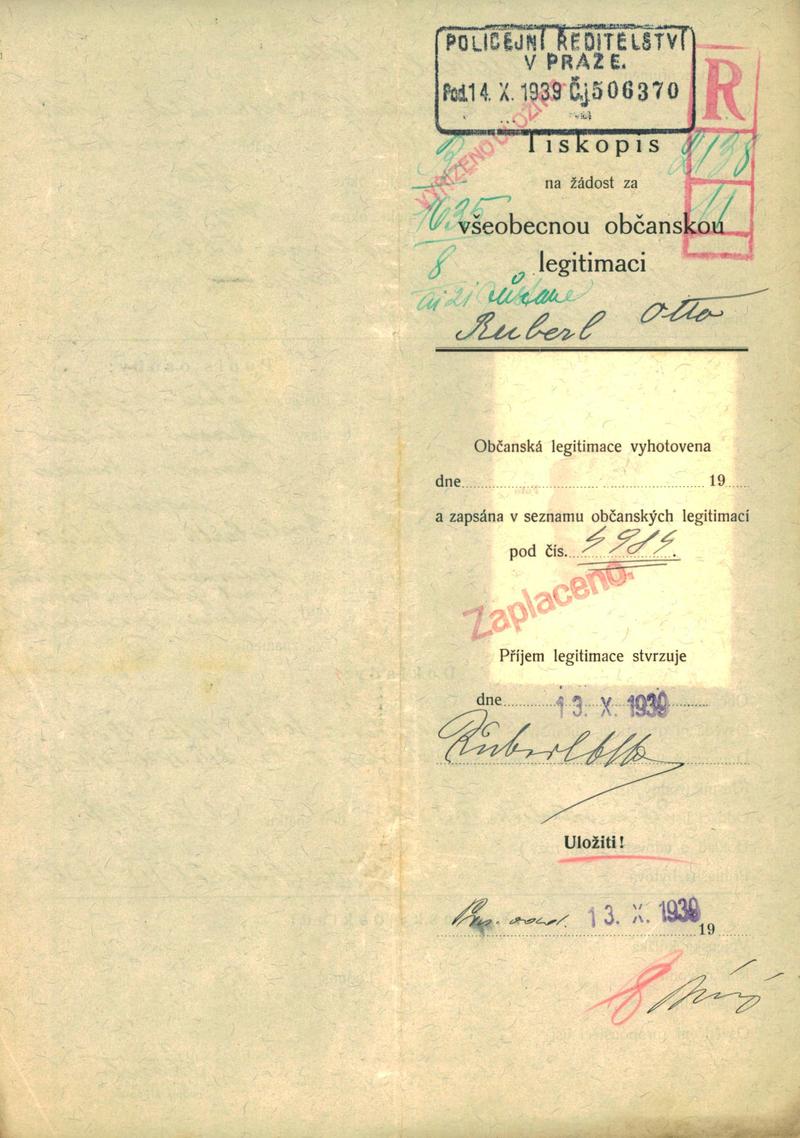 POLICEJNÍ ŘEDITELSTVÍ
V PRAZE.
Pod. 14. X. 1939 Čj 506370
R
VYŘÍZENO ULOŽIT
Tiskopis
2138
na žádost za
11
1635
všeobecnou občanskou
8
legitimaci
Ruberl Otto
Občanská legitimace vyhotovena
dne 19
a zapsána v seznamu občanských legitimací
pod čís.
Zaplaceno.
Příjem legitimace stvrzuje
dne 13. X. 1939
Ruberl Otto
Uložiti!
13. X. 1939
19
8